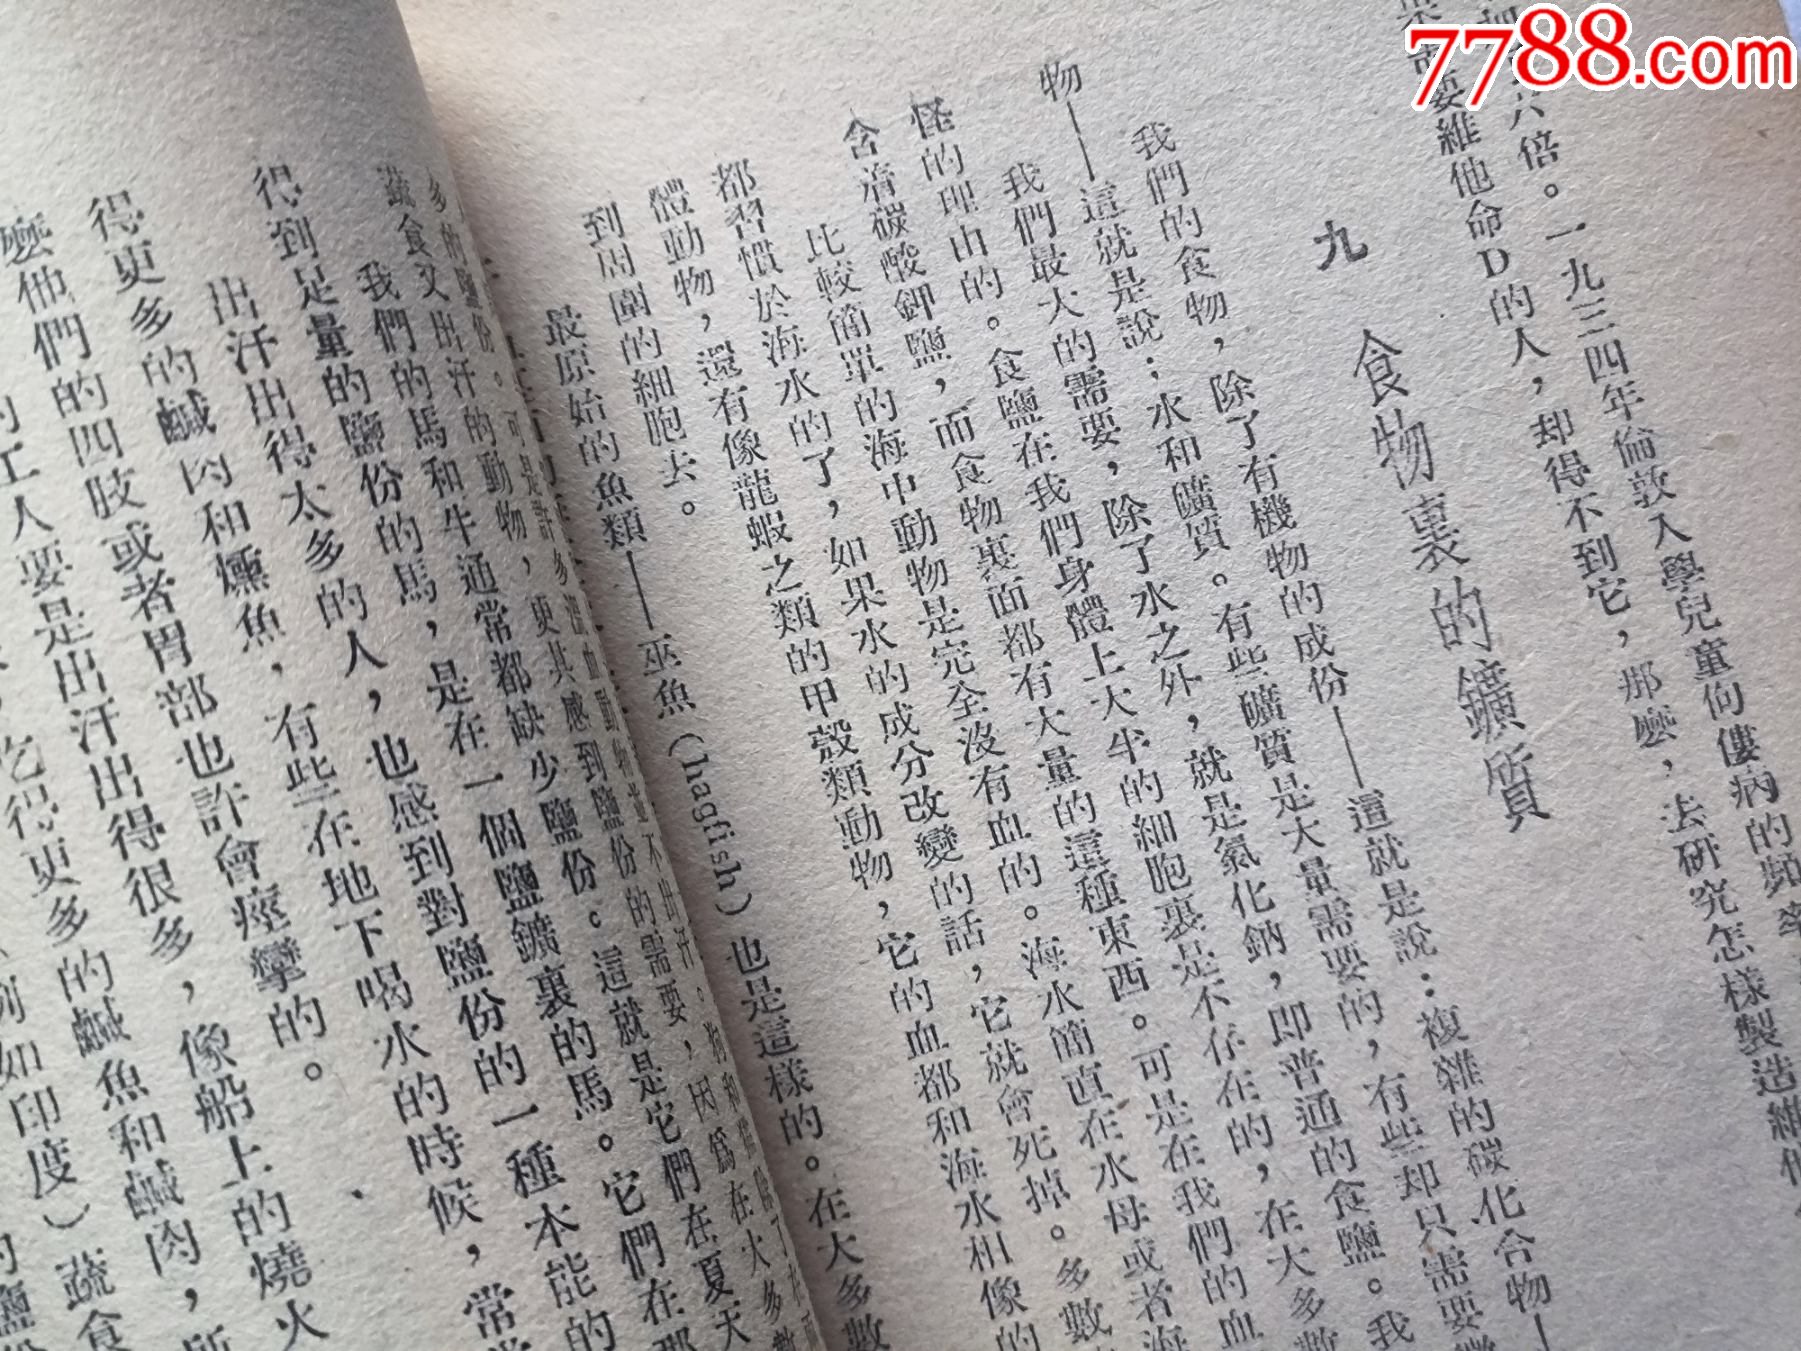 7788.com
六倍。一九三四年倫敦入學兒童佝僂病的頻率
要維他命D的人，却得不到它，那麽，去研究怎樣製造維他
九　食物裏的鑛質
我們的食物，除了有機物的成份——這就是說：複雜的碳化合物—
物——這就是說：水和礦質。有些礦質是大量需要的，有些却只需要
我們最大的需要，除了水之外，就是氯化鈉，即普通的食鹽。我
怪的理由的。食鹽在我們身體上大半的細胞裏是不存在的，在大多數
含着碳酸鉀鹽，而食物裏面都有大量的這種東西。可是在我們的血
比較簡單的海中動物是完全沒有血的。海水簡直在水母或者海
都習慣於海水的了，如果水的成分改變的話，它就會死掉。多數
體動物，還有像龍蝦之類的甲殼類動物，它的血都和海水相像的
到周圍的細胞去。
最原始的魚類——巫魚（hagfish）也是這樣的。在大多數
多的鹽份。可是許多
蔬食又出汗的動物，更其感到鹽份的需要，因爲在大多數
我們的馬和牛通常都缺少鹽份。這就是它們在夏天
得到足量的鹽份的馬，是在一個鹽鑛裏的馬。它們在那
出汗出得太多的人，也感到對鹽份的一種本能的
得更多的鹹肉和燻魚，有些在地下喝水的時候，常
麽他們的四肢或者胃部也許會痙攣的。
的工人要是出汗出得很多，像船上的燒火
吃得更多的鹹魚和鹹肉，所
例如印度）蔬食